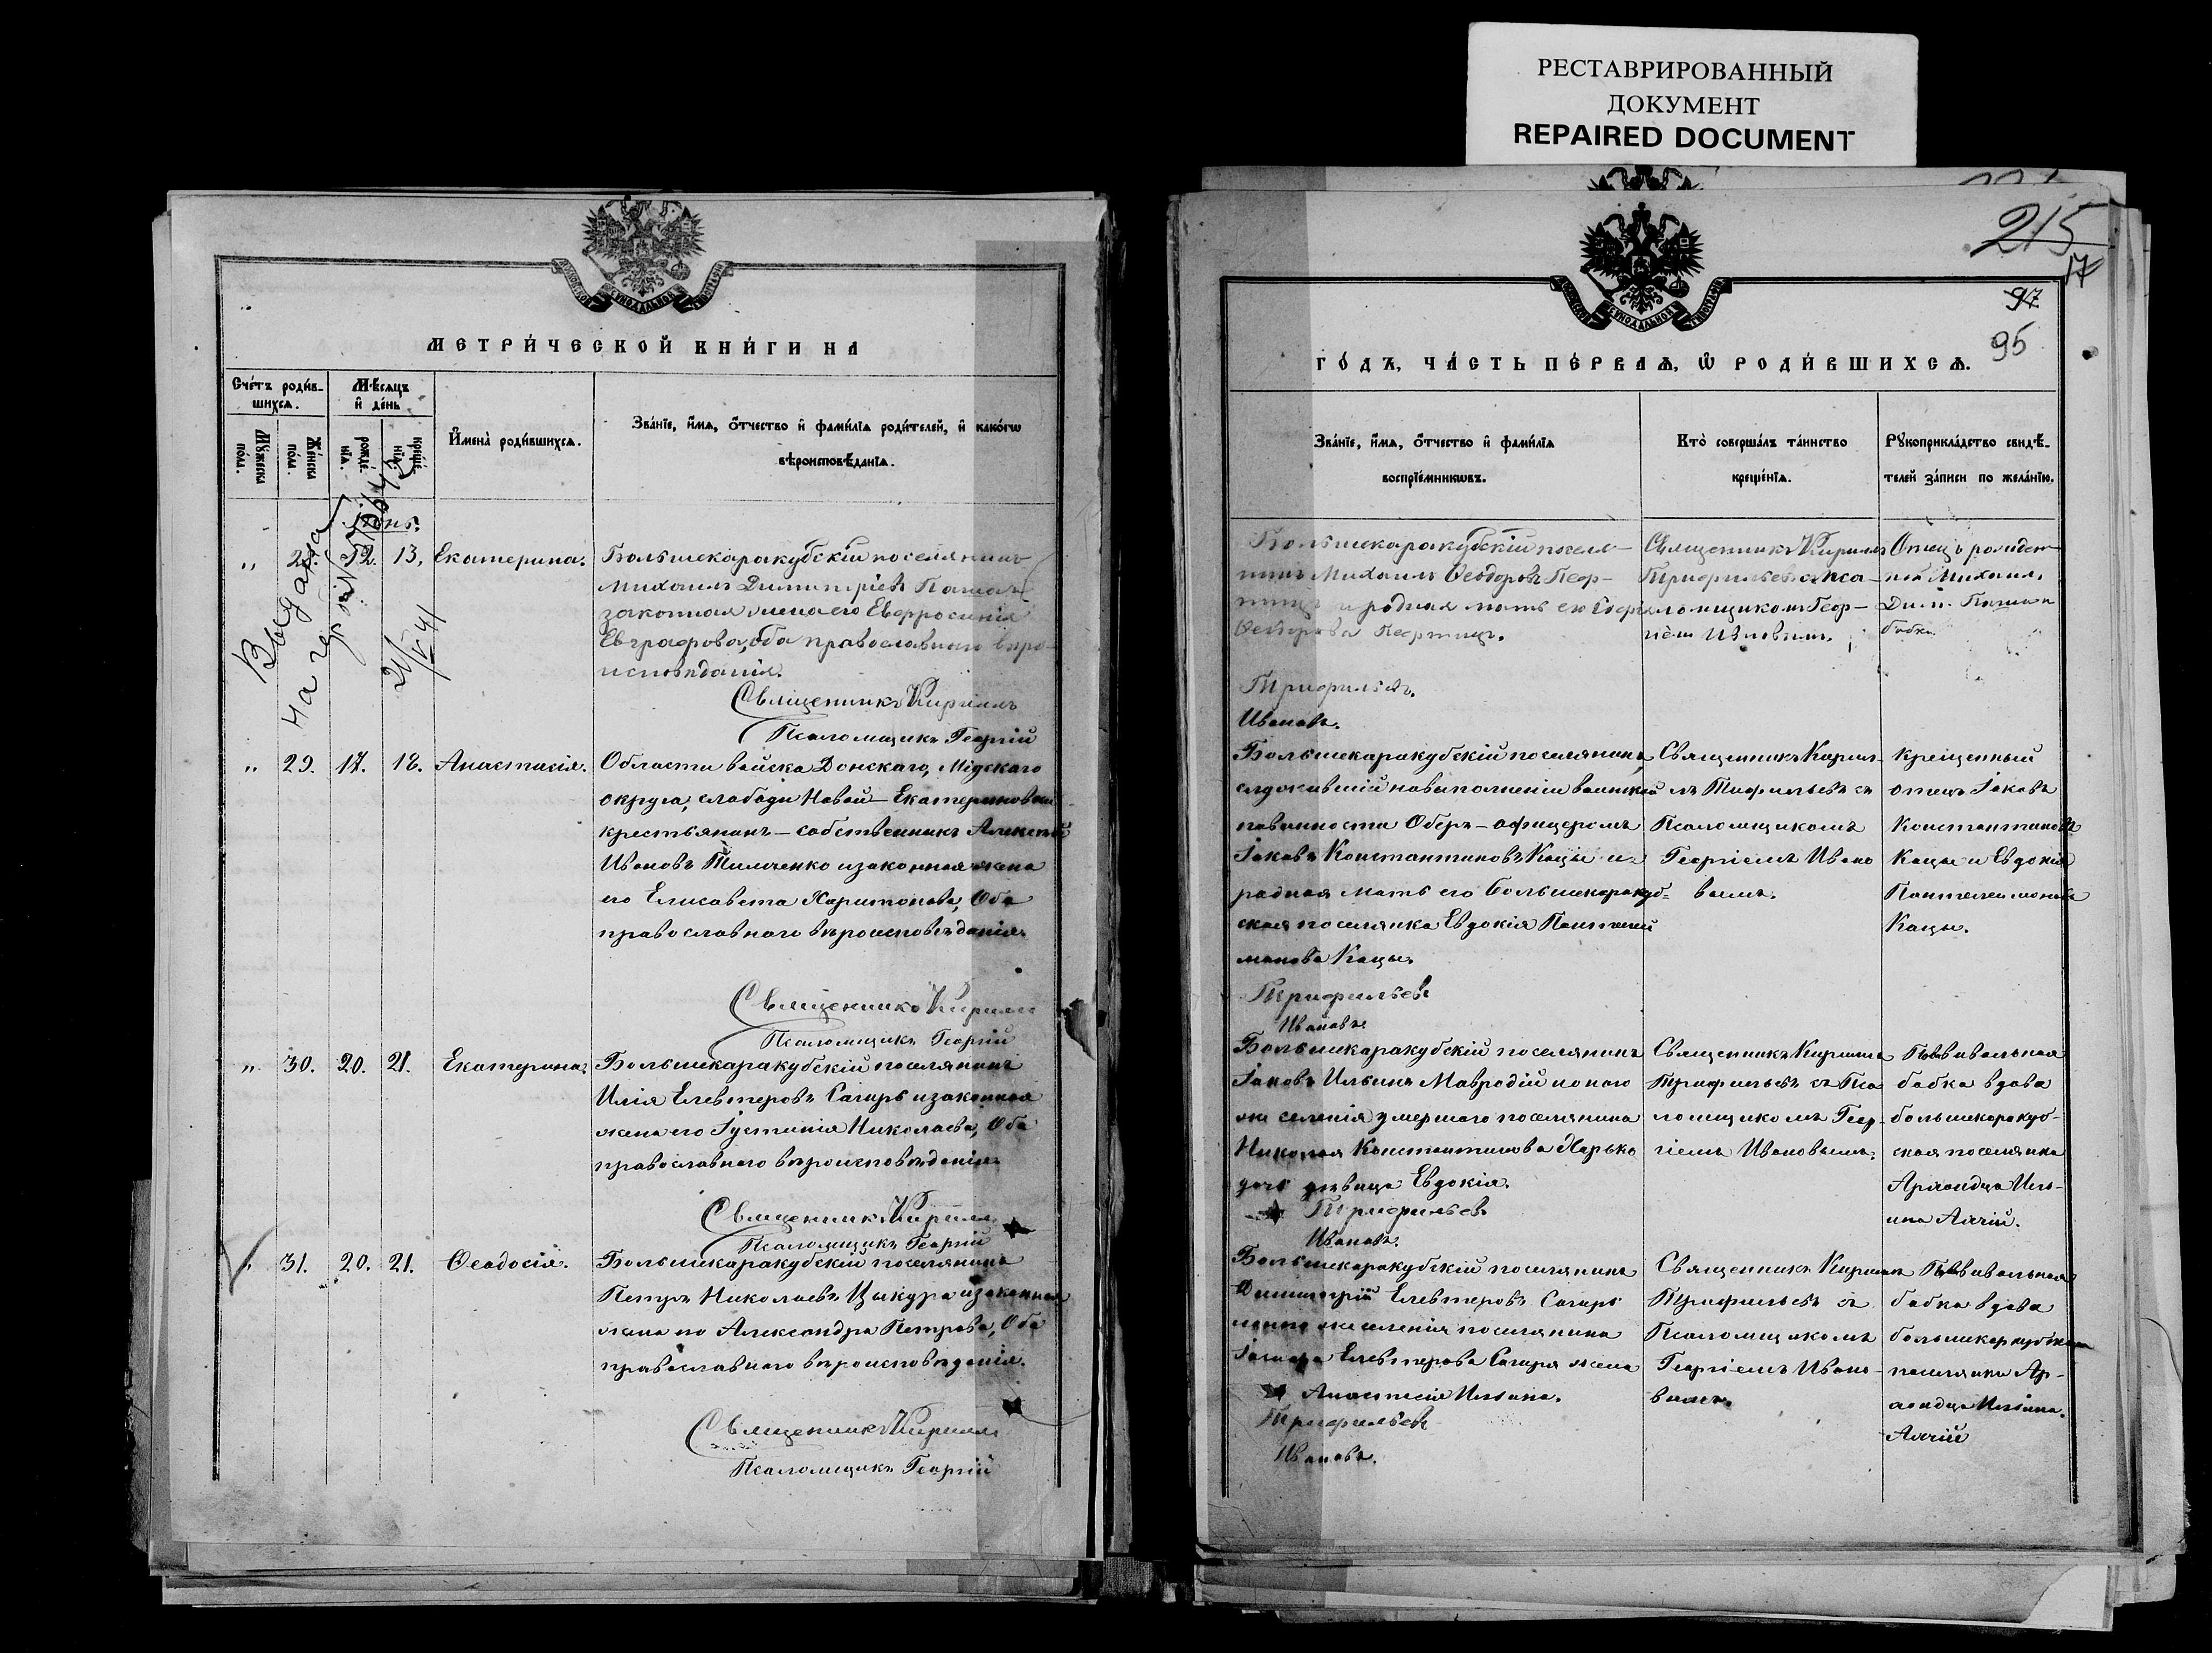 РЕСТАВРИРОВАННЫЙ
ДОКУМЕНТ
REPAIRED DOCUMENT
МЕТРИ́ЧЕСКОЙ КНИ́ГИ НА
Счётъ роди́в-
шихсѧ.
Мѣ́сѧцъ
и҆ де́нь
Мꙋ́жеска
пола.
Же́нска
пола.
рожде́-
нїѧ.
креще́-
нїѧ.
И҆мена̀ роди́вшихсѧ.
Зва́нїе, и҆́мѧ, ѻ҆́тчество и҆ фами́лїѧ роди́телей, и҆ како́гѡ
вѣроисповѣ́данїѧ.
Выдана
21/V 41
Іюнь.
„ 12. 13, Екатерина. Большекаракубскій поселянинъ
Михаилъ Димитріевъ
законная жена его Евфросинія
Евграфова, оба православнаго вѣро-
исповѣданія.
Священникъ Кириллъ
Псаломщикъ Георгій
„ 29. 17. 18. Анастасія. Области войска Донскаго, Міускаго
округа, слободы Новой-Екатериновки
крестьянинъ-собственникъ Алексѣй
Ивановъ Тимченко и законная жена
его Елисавета Харитонова, Оба
православнаго вѣроисповѣданія.
Священникъ Кириллъ
Псаломщикъ Георгій
„ 30. 20. 21. Екатерина. Большекаракубскій поселянинъ
Илія Елевтеровъ Сагиръ и законная
жена его Іустинія Николаева, Оба
православнаго вѣроисповѣданія.
Священникъ Кириллъ
Псаломщикъ Георгій
31. 20. 21. Ѳеодосія. Большекаракубскій поселянинъ
Петръ Николаевъ Цыкура и законная
жена его Александра Петрова, Оба
православнаго вѣроисповѣданія.
Священникъ Кириллъ
Псаломщикъ Георгій
215
17
97
95
ГО́ДЪ, ЧА́СТЬ ПЕ́РВАѦ, Ѡ҆ РОДИ́ВШИХСѦ.
Зва́нїе, и҆́мѧ, ѻ҆́тчество и҆ фами́лїѧ
воспрїе́мникѡвъ.
Кто̀ соверша́лъ та́инство
креще́нїѧ.
Рꙋкоприкла́дство свидѣ́-
телей за́писи по жела́нїю.
Большекаракубскій поселя-
нинъ Михаилъ Ѳеодоровъ
и родная мать его
Трифильевъ.
Ивановъ.
Священникъ Кириллъ
Трифильевъ съ Пса-
ломщикомъ Геор-
гіемъ Ивановымъ.
Отецъ
Михаилъ
Дим.
Большекаракубскій поселянинъ,
служившій на исполненіи воинской
повинности Оберъ-офицеромъ
Іаковъ Константиновъ Кацы и
родная мать его большекаракуб-
ская поселянка Евдокія Пантелей
монова Кацы.
Трифильевъ
Ивановъ.
Священникъ Кирил-
лъ Трифильевъ съ
Псаломщикомъ
Георгіемъ Ивано
вымъ.
Крещенный
отецъ Іаковъ
Константиновъ
Кацы и Евдокія
Пантелеймонова
Кацы.
Большекаракубскій поселянинъ
Іаковъ Ильинъ Мавродій и того
же селенія умершаго поселянина
Николая Константинова Харько
дочь дѣвица Евдокія.
Трифильевъ
Ивановъ.
Священникъ Кириллъ
Трифильевъ съ Пса
ломщикомъ Геор-
гіемъ Ивановымъ.
Повивальная
бабка вдова
большекаракуб-
ская поселянка
Ильи-
на
Большекаракубскій поселянинъ
Димитрій Елевтеровъ Сагиръ
и того же селенія поселянина
Елевтерова Сагиря жена
Анастасія Ильина.
Трифильевъ
Ивановъ.
Священникъ Кириллъ
Трифильевъ съ
Псаломщикомъ
Георгіемъ Ивано-
вымъ.
Повивальная
бабка вдова
большекаракубская
поселянка Ар-
Ильина